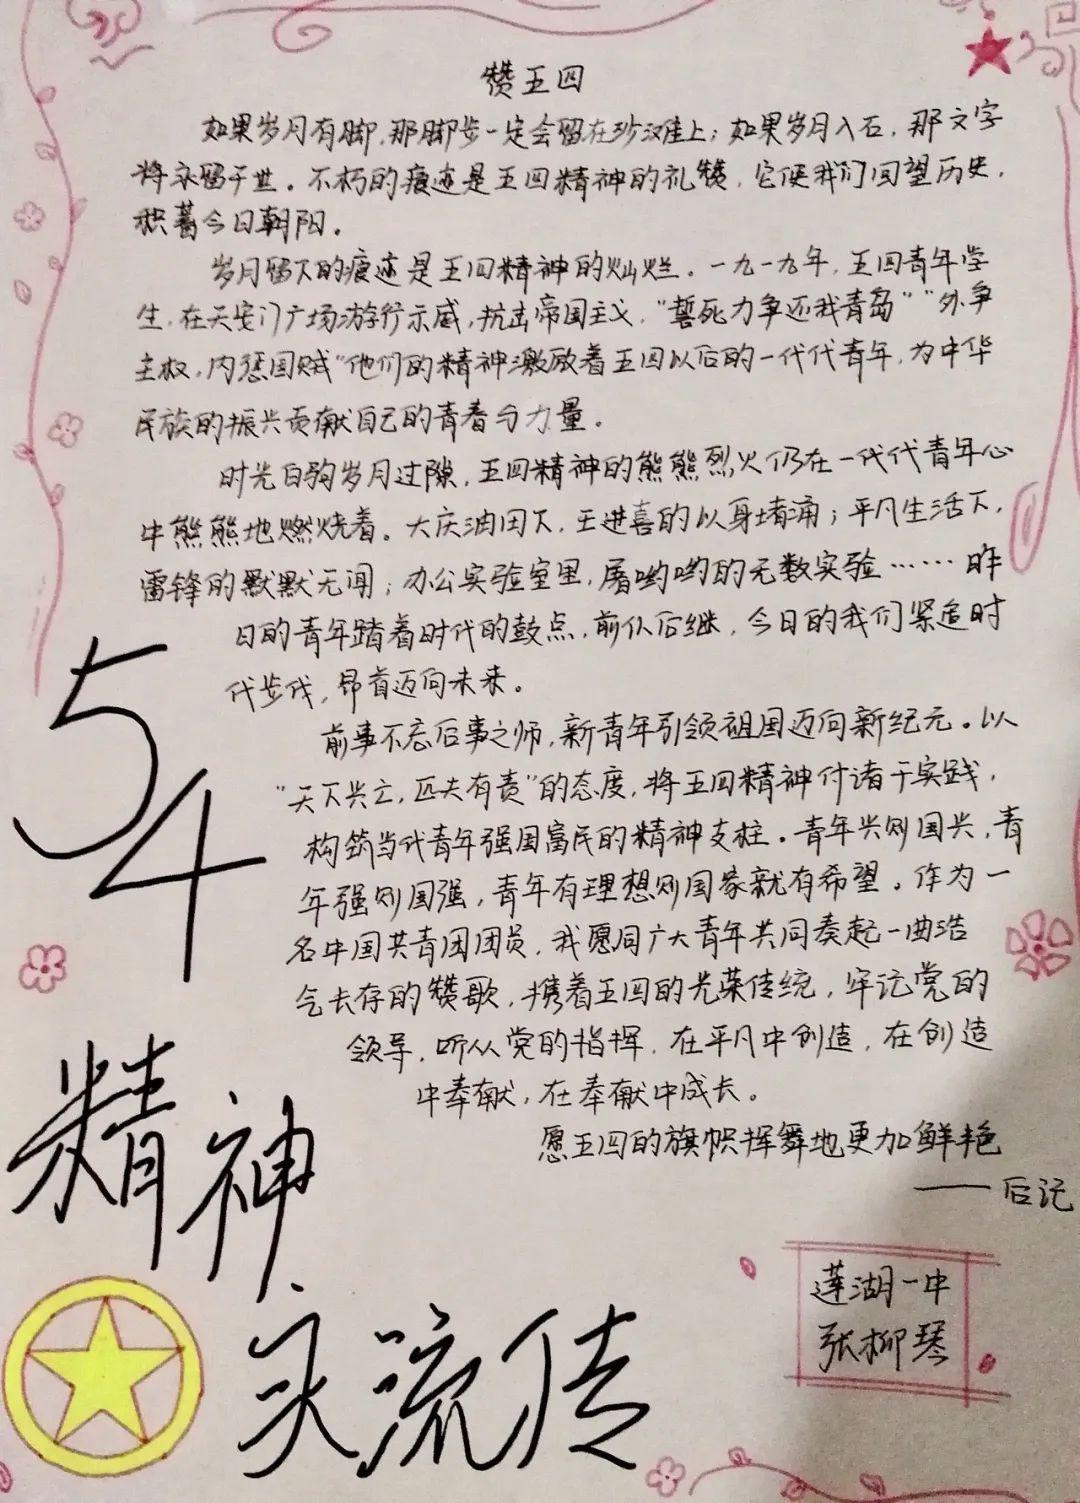 赞五四
如果岁月有脚，那脚步一定会留在沙滩上；如果岁月入石，那文字
将永留于世。不朽的痕迹是五四精神的礼赞，它使我们回望历史，
积蓄今日朝阳。
岁月留下的痕迹是五四精神的灿烂。一九一九年，五四青年学
生，在天安门广场游行示威，抗击帝国主义，“誓死力争还我青岛”“外争
主权，内惩国贼”他们的精神激放着五四以后的一代代青年，为中华
民族的振兴贡献自己的青春与力量。
时光白驹岁月过隙，五四精神的熊熊烈火仍在一代代青年心
中熊熊地燃烧着。大庆油田下，王进喜的以身堵涌；平凡生活下，
雷锋的默默无闻；办公实验室里，屠呦呦的无数实验……昨
日的青年踏着时代的鼓点，前仆后继，今日的我们紧追时
代步伐，昂首迈向未来。
前事不忘后事之师，新青年引领祖国迈向新纪元。以
“天下兴亡，匹夫有责”的态度，将五四精神付诸于实践，
构筑当代青年强国富民的精神支柱。青年兴则国兴，青
年强则国强，青年有理想则国家就有希望。作为一
名中国共青团团员，我愿同广大青年共同奏起一曲浩
气长存的赞歌，携着五四的光荣传统，牢记党的
领导，听从党的指挥，在平凡中创造，在创造
中奉献，在奉献中成长。
愿五四的旗帜挥舞地更加鲜艳
——后记
54
精神
永流传
莲湖一中
张柳琴